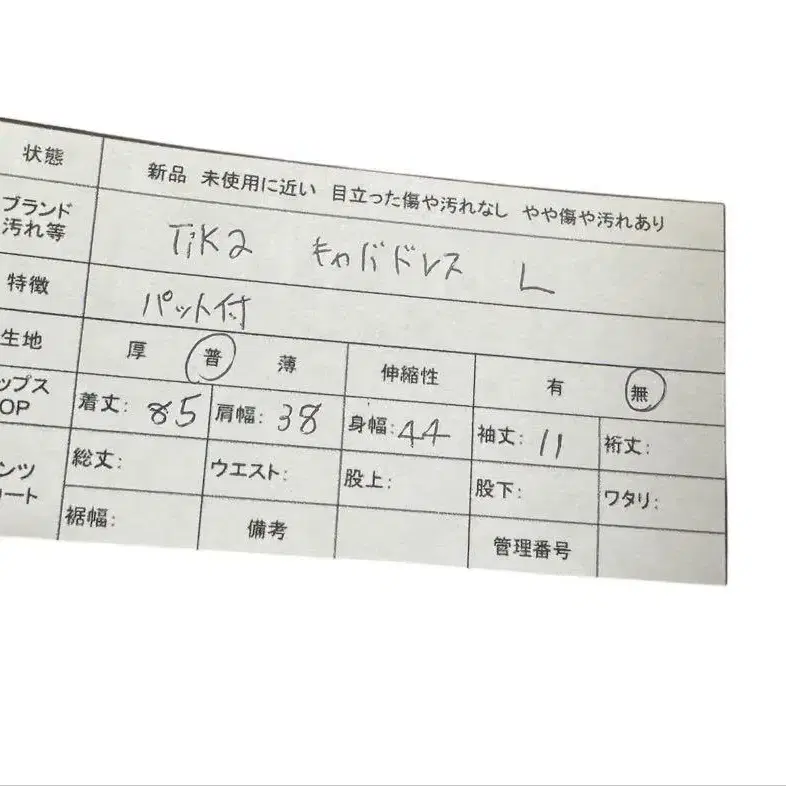 状態 新品 未使用に近い 目立った傷や汚れなし やや傷や汚れあり
ブランド
汚れ等 TiKa キャバドレス L
特徴 パット付
生地 厚 普 薄 伸縮性 有 無
ップス
OP 着丈: 85 肩幅: 38 身幅: 44 袖丈: 11 裄丈:
ンツ
ート 総丈: ウエスト: 股上: 股下: ワタリ:
裾幅: 備考 管理番号